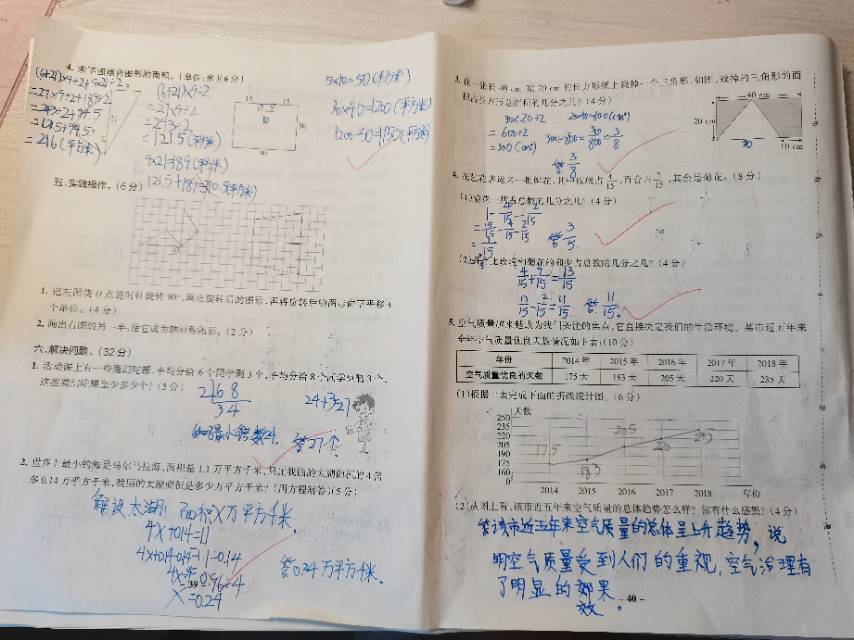 4. 求下图组合图形的面积。(单位:米)(6分)
(6+21)×9÷2+9×21÷2
=27×9÷2+189÷2
=243÷2+94.5
=121.5+94.5
=216(平方米)
(6+21)×9÷2
=27×9÷2
=243÷2
=121.5(平方米)
9×21=189(平方米)
5×10=50(平方米)
30×40=1200(平方米)
1200-50=1150(平方米)
15
15
10
40
五、实践操作。(6分)
1. 把左图绕O点逆时针旋转90°,画出旋转后的图形,再将旋转后的图形向下平移4
个单位。(4分)
2. 画出右图的另一半,使它成为轴对称图形。(2分)
六、解决问题。(32分)
1. 活动课上有一些魔幻陀螺,平均分给6个同学剩3个,平均分给8个同学剩3个,
这些魔幻陀螺至少多少个?(5分)
2 6 8
3 4
24+3=27
答27个
2. 世界上最小的海是马尔马拉海,面积是1.1万平方千米,比我国的太湖面积的4倍
多0.14万平方千米,我国的太湖面积是多少万平方千米?(用方程解答)(5分)
解设太湖面积X万平方千米.
4X+0.14=1.1
4X+0.14-0.14=1.1-0.14
X=0.24
答0.24万平方千米.
- 39
3. 在一张长40 cm、宽20 cm的长方形纸上裁掉一个三角形,如图,裁掉的三角形的面
积占长方形总面积的几分之几?(4分)
30×20÷2
=600÷2
=300(cm²)
20×40=800(cm²)
300÷800=300/800=3/8
答3/8
40 cm
20 cm
30
10 cm
4. 花艺花店运来一批鲜花,其中玫瑰占4/15,百合占2/15,其余是菊花。(8分)
(1)菊花占总数的几分之几?(4分)
1-4/15-2/15
=15/15-4/15-2/15
=9/15
答3/5.
4/15+9/15=13/15
13/15-2/15=11/15
答:11/15.
5. 空气质量越来越成为我们关注的焦点,它直接决定我们的生活环境。某市近五年来
全年空气质量优良天数情况如下表:(10分)
年份 2014年 2015年 2016年 2017年 2018年
空气质量优良的天数 175天 183天 205天 220天 235天
(1)根据上表完成下面的折线统计图。(6分)
天数
250
235
220
205
190
175
160
0
175
183
205
220
235
2014 2015 2016 2017 2018 年份
(2)从图上看,该市近五年来空气质量的总体趋势怎么样?你有什么感想?(4分)
答该市近五年来空气质量的总体呈上升趋势,说
明空气质量受到人们的重视,空气治理有
了明显的效果
效。
- 40 -